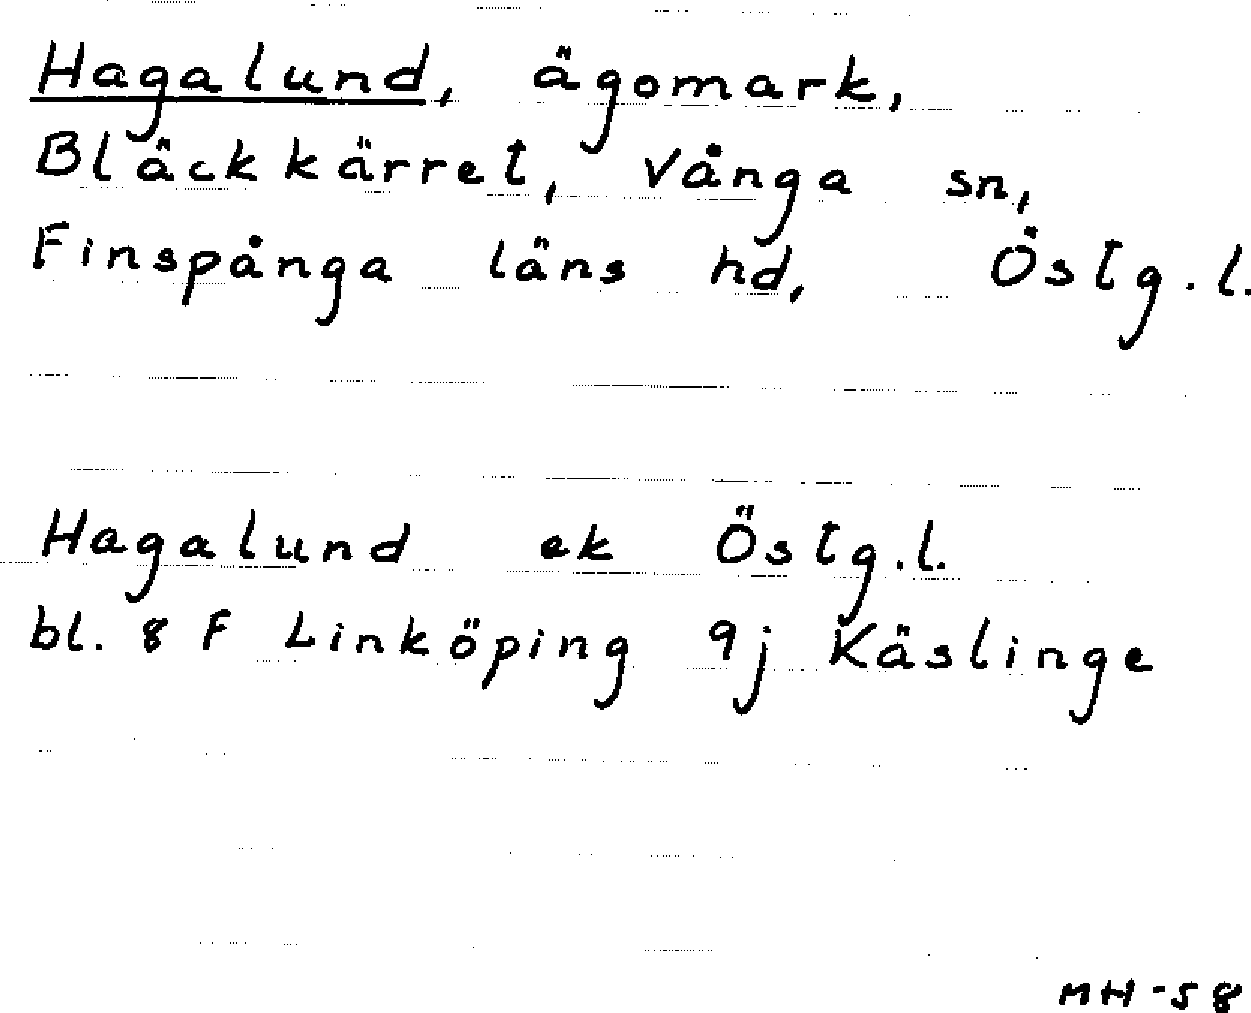 Hagalund, ägomark,
Bläckkärret, Vånga sn,
Finspånga läns hd, Östg.l.
Hagalund ek Östg.l.
bl. 8 F Linköping 9j Käslinge
MH-58